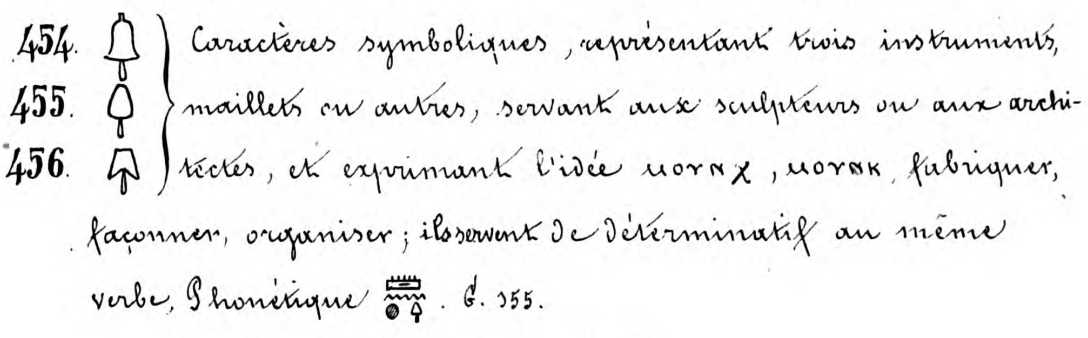 454. Caractères symboliques, représentant trois instruments,
455. maillets ou autres, servant aux sculpteurs ou aux archi-
456. tectes, et exprimant l'idée ⲙⲟⲩⲛⲭ, ⲙⲟⲩⲛⲕ, fabriquer,
façonner, organiser; ils servent de déterminatif au même
verbe, Phonétique . G. 355.